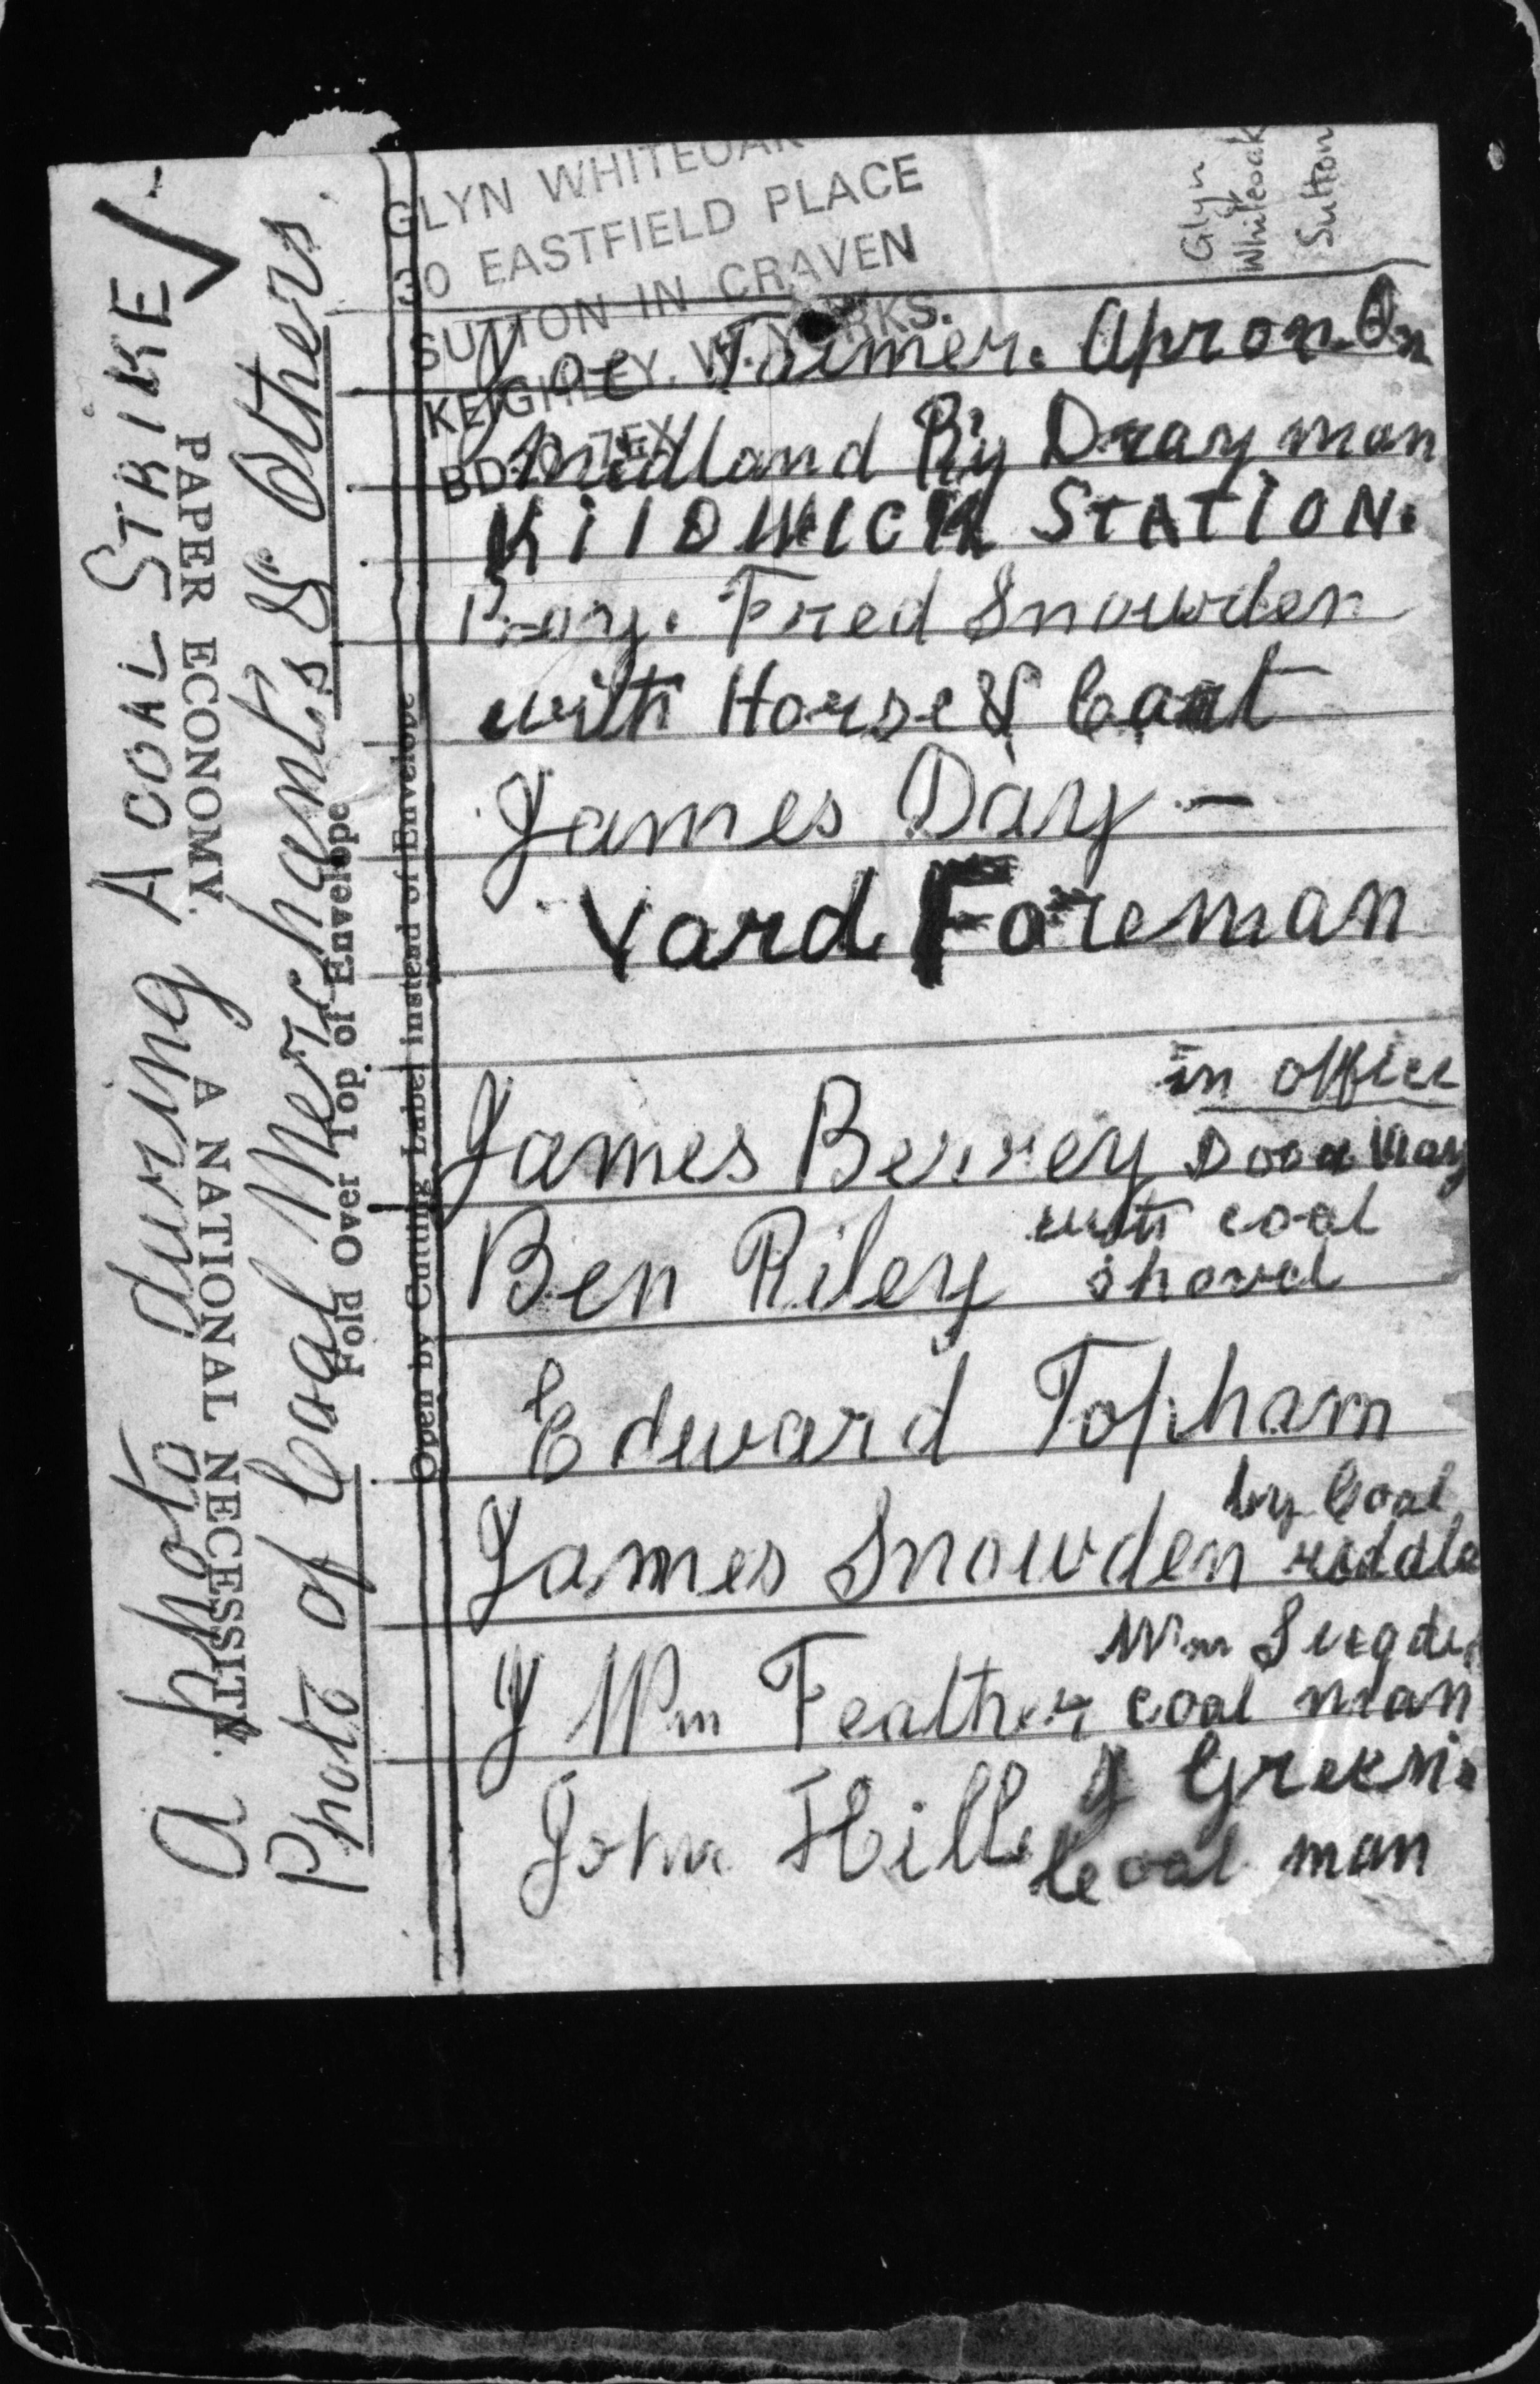 a photo during A COAL STRIKE
PAPER ECONOMY. A NATIONAL NECESSITY.
Photo of Coal Merchants & Others.
Fold Over Top of Envelope
Open by Cutting Label instead of Envelope
GLYN WHITEOAK
30 EASTFIELD PLACE
SUTTON IN CRAVEN
KEIGHLEY, W. YORKS.
BD20 7EX
Glyn
Whiteoak
Sutton
Joe Apron On
Midland Ry Dray man
KilDWICK STATiON.
Boy. Fred Snowden
with Horse & Cart
James Day -
Yard Foreman
in office
James Berrey Door Way
Ben Riley with coal
shovel
Edward Topham
by Coal
James Snowden riddle
Wm Sugden
J Wm Feather coal man
John Hill J Green
Coal man